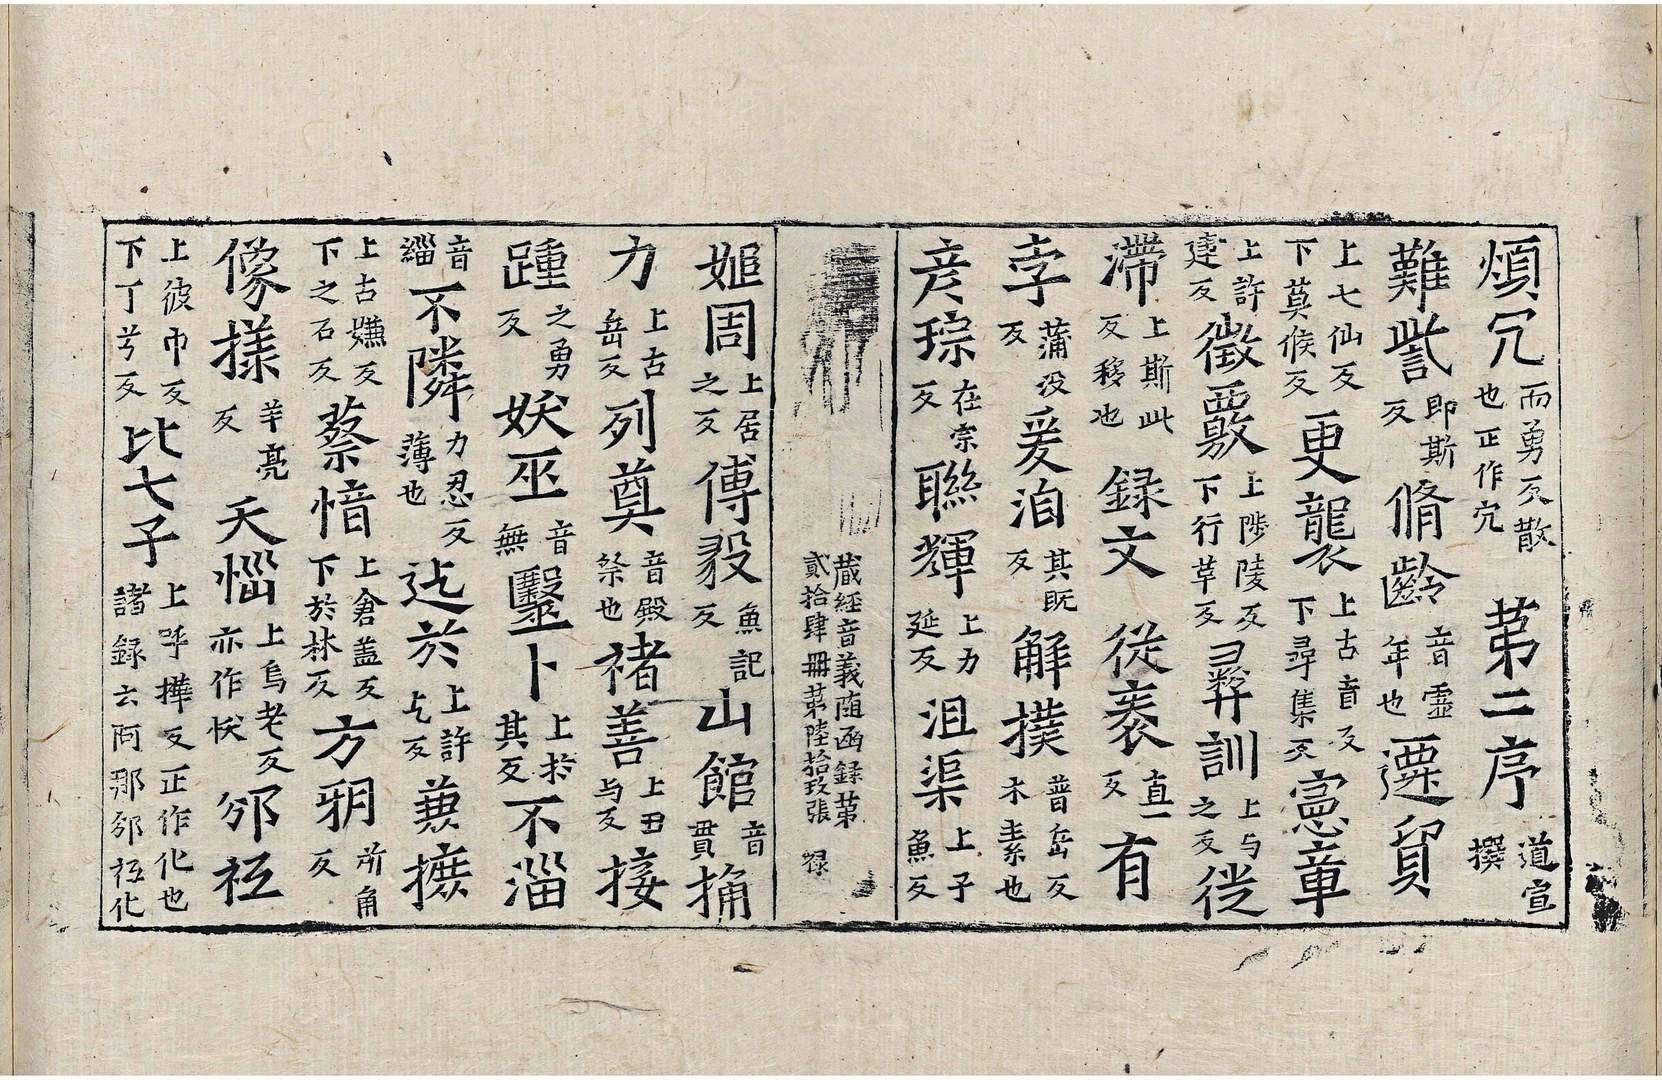 煩冗而勇反散也正作宂第二序道宣撰
難訾即斯反脩齡音霊年也遷貿
上七仙反下莫候反更襲上古音反下尋集反憲章
上許建反徵覈上陟陵反下行革反彛訓上与之反従
滯上斯此反移也録文従袠直一反有
孛蒲没反爰洎其旣反解撲普岳反木素也
彦琮在宗反聯輝上力延反沮渠上子魚反
蔵經音義随函録第貳拾肆冊第陸拾玖張 禄
姬周上居之反傅毅魚記反山館音貫捔
力上古岳反列奠音殿祭也禇善上丑与反接
踵之勇反妖巫音無毉卜上於其反不淄
音緇不隣力忍反薄也迄於上許乞反兼摭
上古嫌反下之石反蔡愔上倉盖反下於林反方朔所角反
像樣羊亮反夭惱上烏老反亦作𢗗邠袛
上彼巾反下丁兮反比七子上呼樺反正作化也諸録云阿那邠袛化